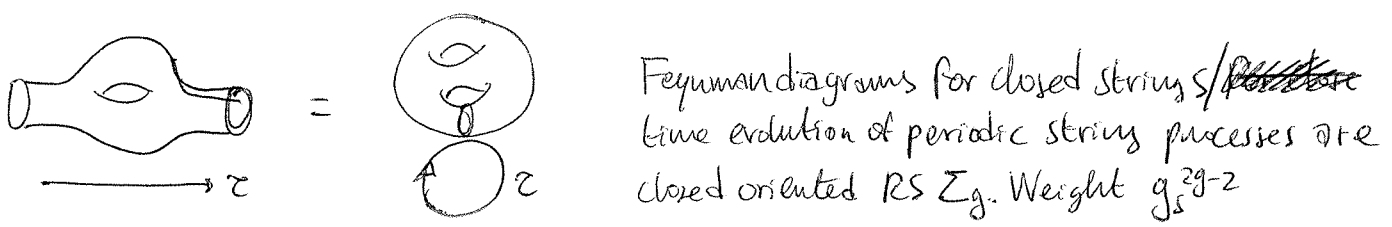 Feynman diagrams for closed strings/
time evolution of periodic string processes are
closed oriented RS Σ_g. Weight g_s^{2g-2}
=
τ
τ